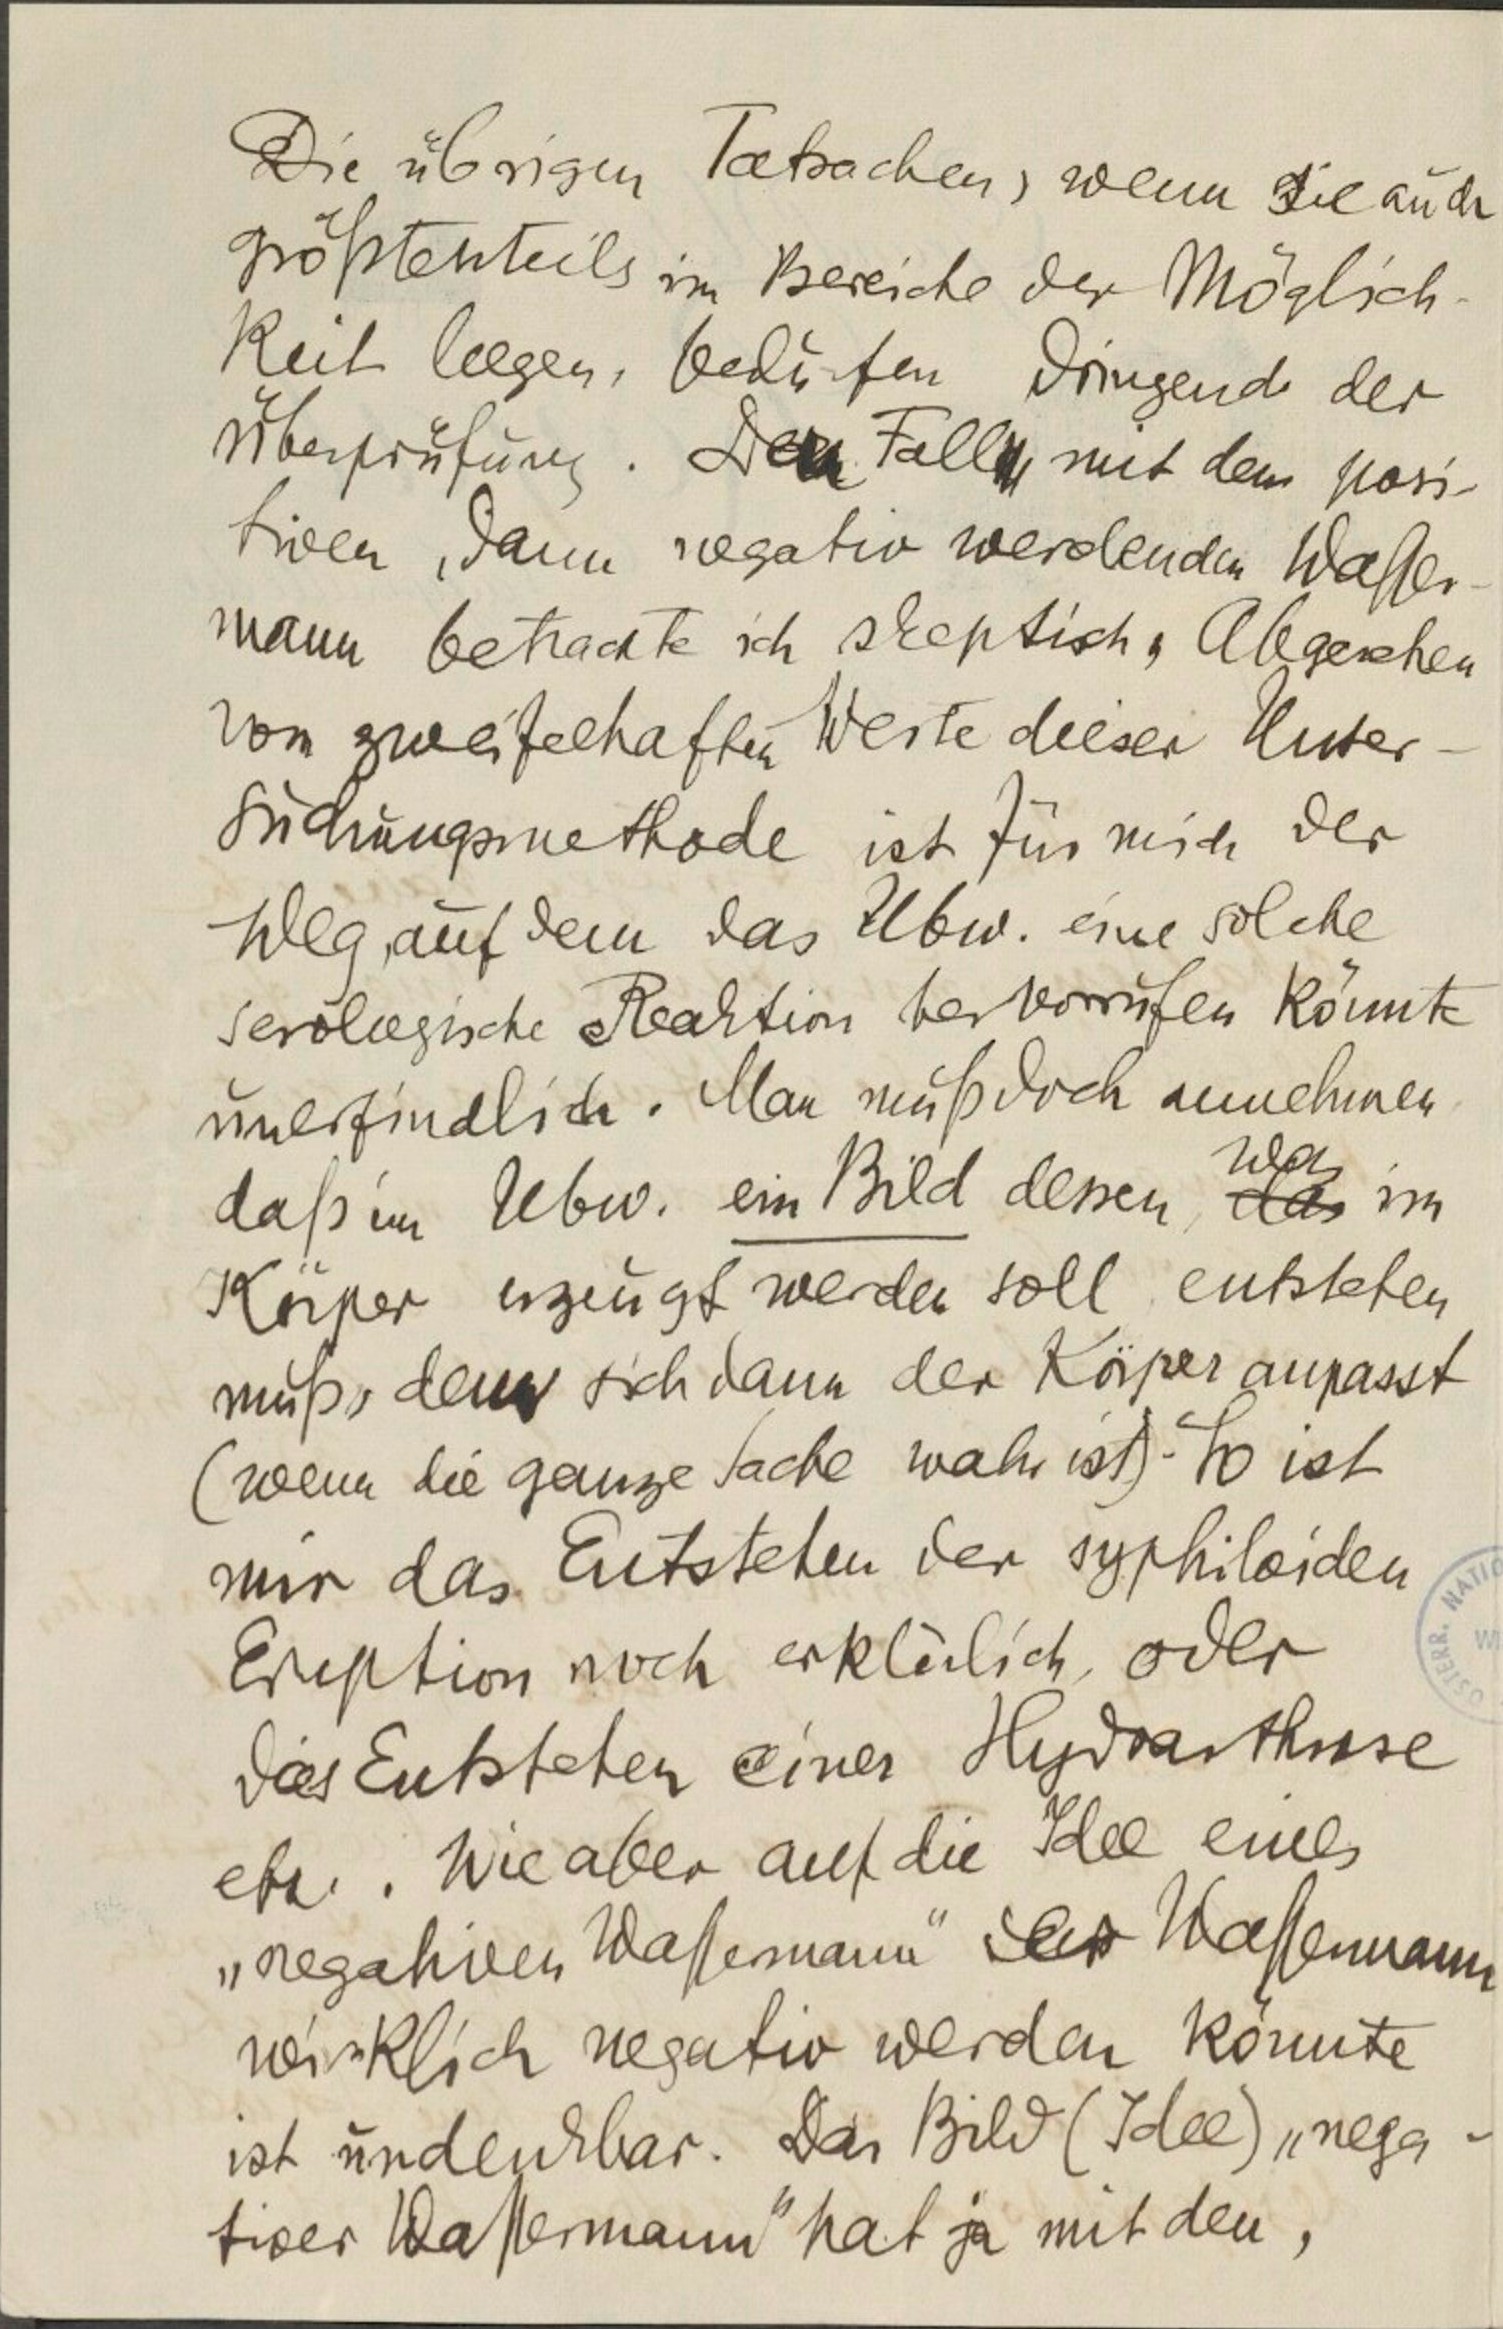 Die übrigen Tatsachen, wenn sie auch
größtenteils im Bereiche der Möglich-
keit liegen, bedürfen dringend der
Überprüfung. Den Fall mit dem posi-
tiven, dann negativ werdenden Wasser-
mann betrachte ich skeptisch, Abgesehen
vom zweifelhaften Werte dieser Unter-
suchungsmethode ist für mich der
Weg, auf dem das Ubw. eine solche
serologische Reaktion hervorrufen könnte
unerfindlich. Man muß doch annehmen
daß im Ubw. ein Bild dessen, was
das im
Körper erzeugt werden soll entstehen
muß, dem sich dann der Körper anpasst
(wenn die ganze Sache wahr ist) - So ist
mir das Entstehen der syphiloiden
Eruption noch erklärlich, oder
das Entstehen einer Hydrarthrose
etc.. Wie aber auf die Idee eines
„negativen Wassermann" der Wassermann
wirklich negativ werden könnte
ist undenkbar. Das Bild (Idee) „nega-
tiver Wassermann" hat ja mit den,
ÖSTERR. NATIO
W